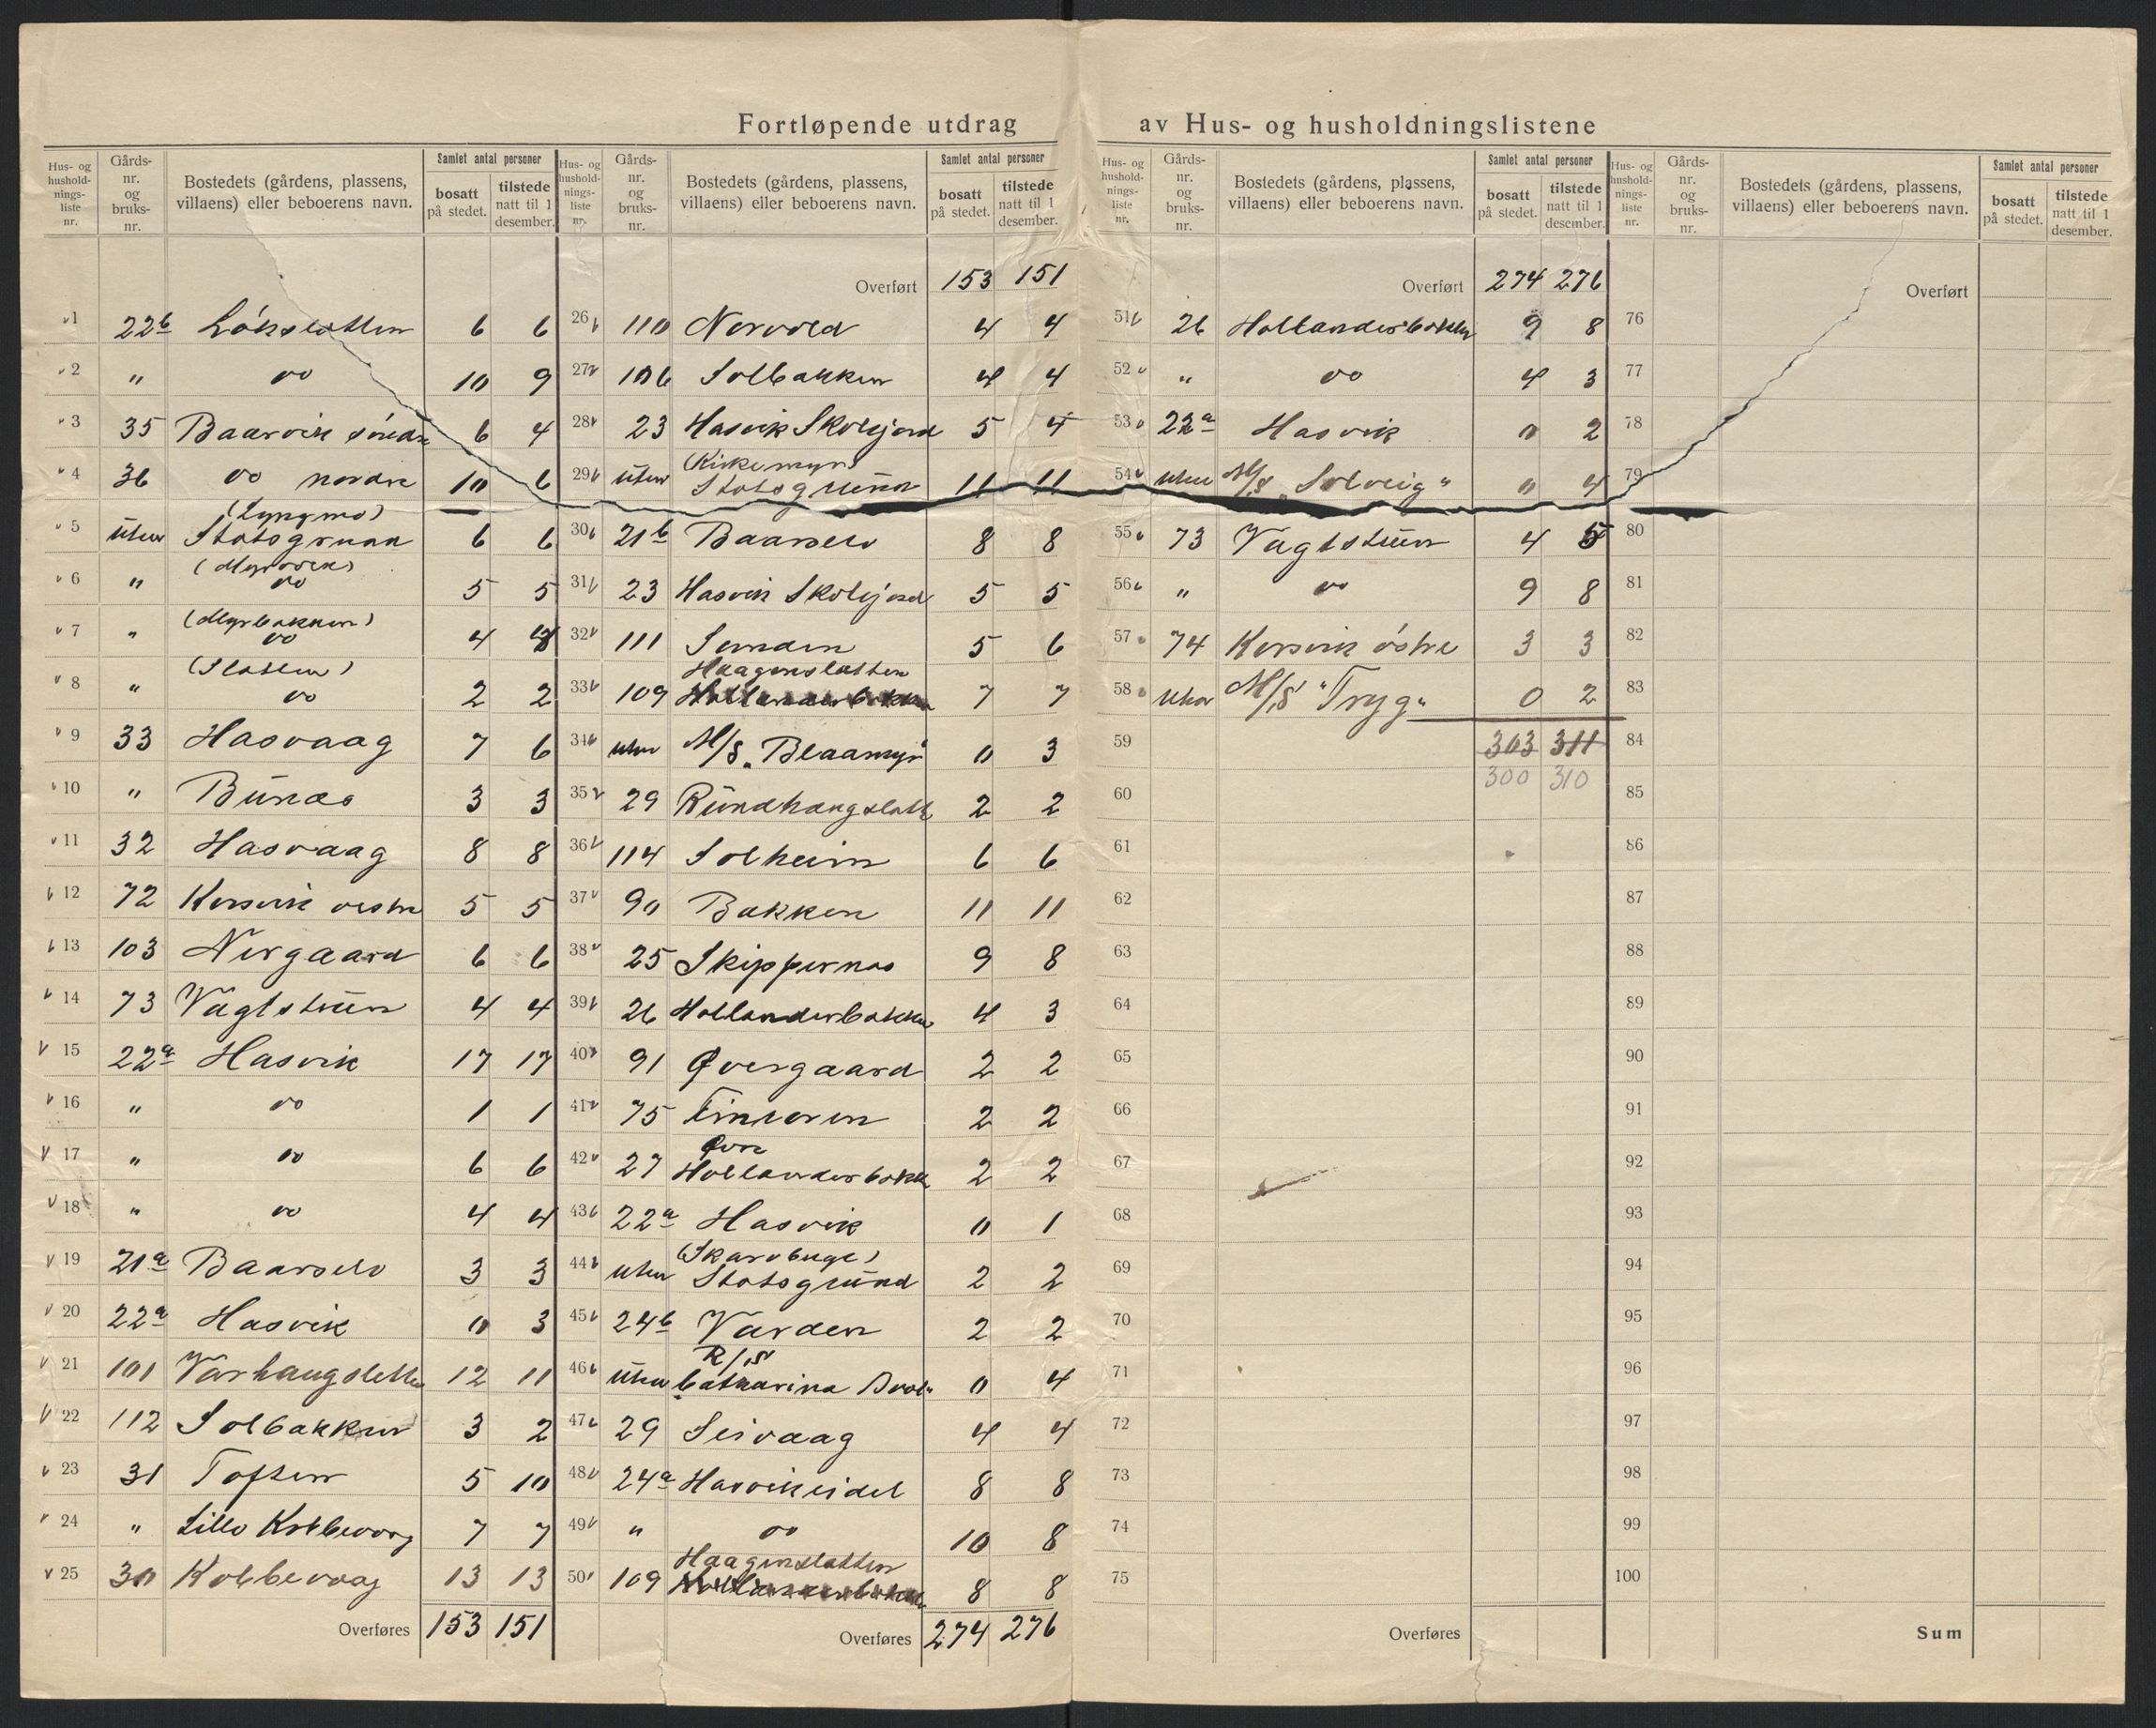 Fortløpende utdrag av Hus- og husholdningslistene
Hus- og hushold-nings-liste nr. Gårds-nr. og bruks-nr. Bostedets (gårdens, plassens, villaens) eller beboerens navn. Samlet antal personer bosatt på stedet. tilstede natt til 1 desember.
1 22b 6 6
2 " do 10 9
3 35 Baarvik søndre 6 4
4 36 do nordre 10 6
(Lyngmo)
5 uten Statsgrunn 6 6
(Myrvik)
6 " do 5 5
(Myrbakken)
7 " do 4
(Sletten)
8 " do 2 2
9 33 Hasvaag 7 6
10 " Bunæs 3 3
11 32 Hasvaag 8 8
12 72 Korsvik vestre 5 5
13 103 Nergaard 6 6
14 73 Vagtstuen 4 4
15 22a Hasvik 17 17
16 " do 1 1
17 " do 6 6
18 " do 4 4
19 21a Baarselv 3 3
20 22a Hasvik 0 3
21 101 Varhaugsletten 12 11
22 112 Solbakken 3 2
23 31 Toften 5 10
24 " Lille Kobbevaag 7 7
25 30 Kobbevaag 13 13
Overføres 153 151
Hus- og hushold-nings-liste nr. Gårds-nr. og bruks-nr. Bostedets (gårdens, plassens, villaens) eller beboerens navn. Samlet antal personer bosatt på stedet. tilstede natt til 1 desember.
Overført 153 151
26 110 Norvold 4 4
27 106 Solbakken 4 4
28 23 Hasvik Skolejord 5 4
(Kirkemyr)
29 uten Statsgrund 11 11
30 21b Baarselv 8 8
31 23 Hasvik Skolejord 5 5
32 111 Sanden 5 6
Haagensletten
33 109 Hollenderbakken 7 7
34 uten M/S "Blaamyr" 0 3
35 29 Rundhaugslett 2 2
36 114 Solheim 6 6
37 90 Bakken 11 11
38 25 Skippernæs 9 8
39 26 Hollanderbakken 4 3
40 91 Øvergaard 2 2
41 75 2 2
Øvre
42 27 Hollanderbakk 2 2
43 22a Hasvik 0 1
(Skarvbugt)
44 uten Statsgrund 2 2
45 24b Varden 2 2
R/S
46 uten Catharina 0 4
47 29 Seivaag 4 4
48 24a Hasvikeidet 8 8
49 " do 10 8
Haagensletten
50 109 Hollanderbakk 8 8
Overføres 274 276
Hus- og hushold-nings-liste nr. Gårds-nr. og bruks-nr. Bostedets (gårdens, plassens, villaens) eller beboerens navn. Samlet antal personer bosatt på stedet. tilstede natt til 1 desember.
Overført 274 276
51 26 Hollanderbakken 9 8
52 " do 4 3
53 22a Hasvik 0 2
54 uten M/S "Solveig" 0 4
55 73 Vagtstuen 4 5
56 " do 9 8
57 74 Korsvik østre 3 3
58 uten M/S "Tryg" 0 2
59 303 311
300 310
60
61
62
63
64
65
66
67
68
69
70
71
72
73
74
75
Overføres
Hus- og hushold-nings-liste nr. Gårds-nr. og bruks-nr. Bostedets (gårdens, plassens, villaens) eller beboerens navn. Samlet antal personer bosatt på stedet. tilstede natt til 1 desember.
Overført
76
77
78
79
80
81
82
83
84
85
86
87
88
89
90
91
92
93
94
95
96
97
98
99
100
Sum